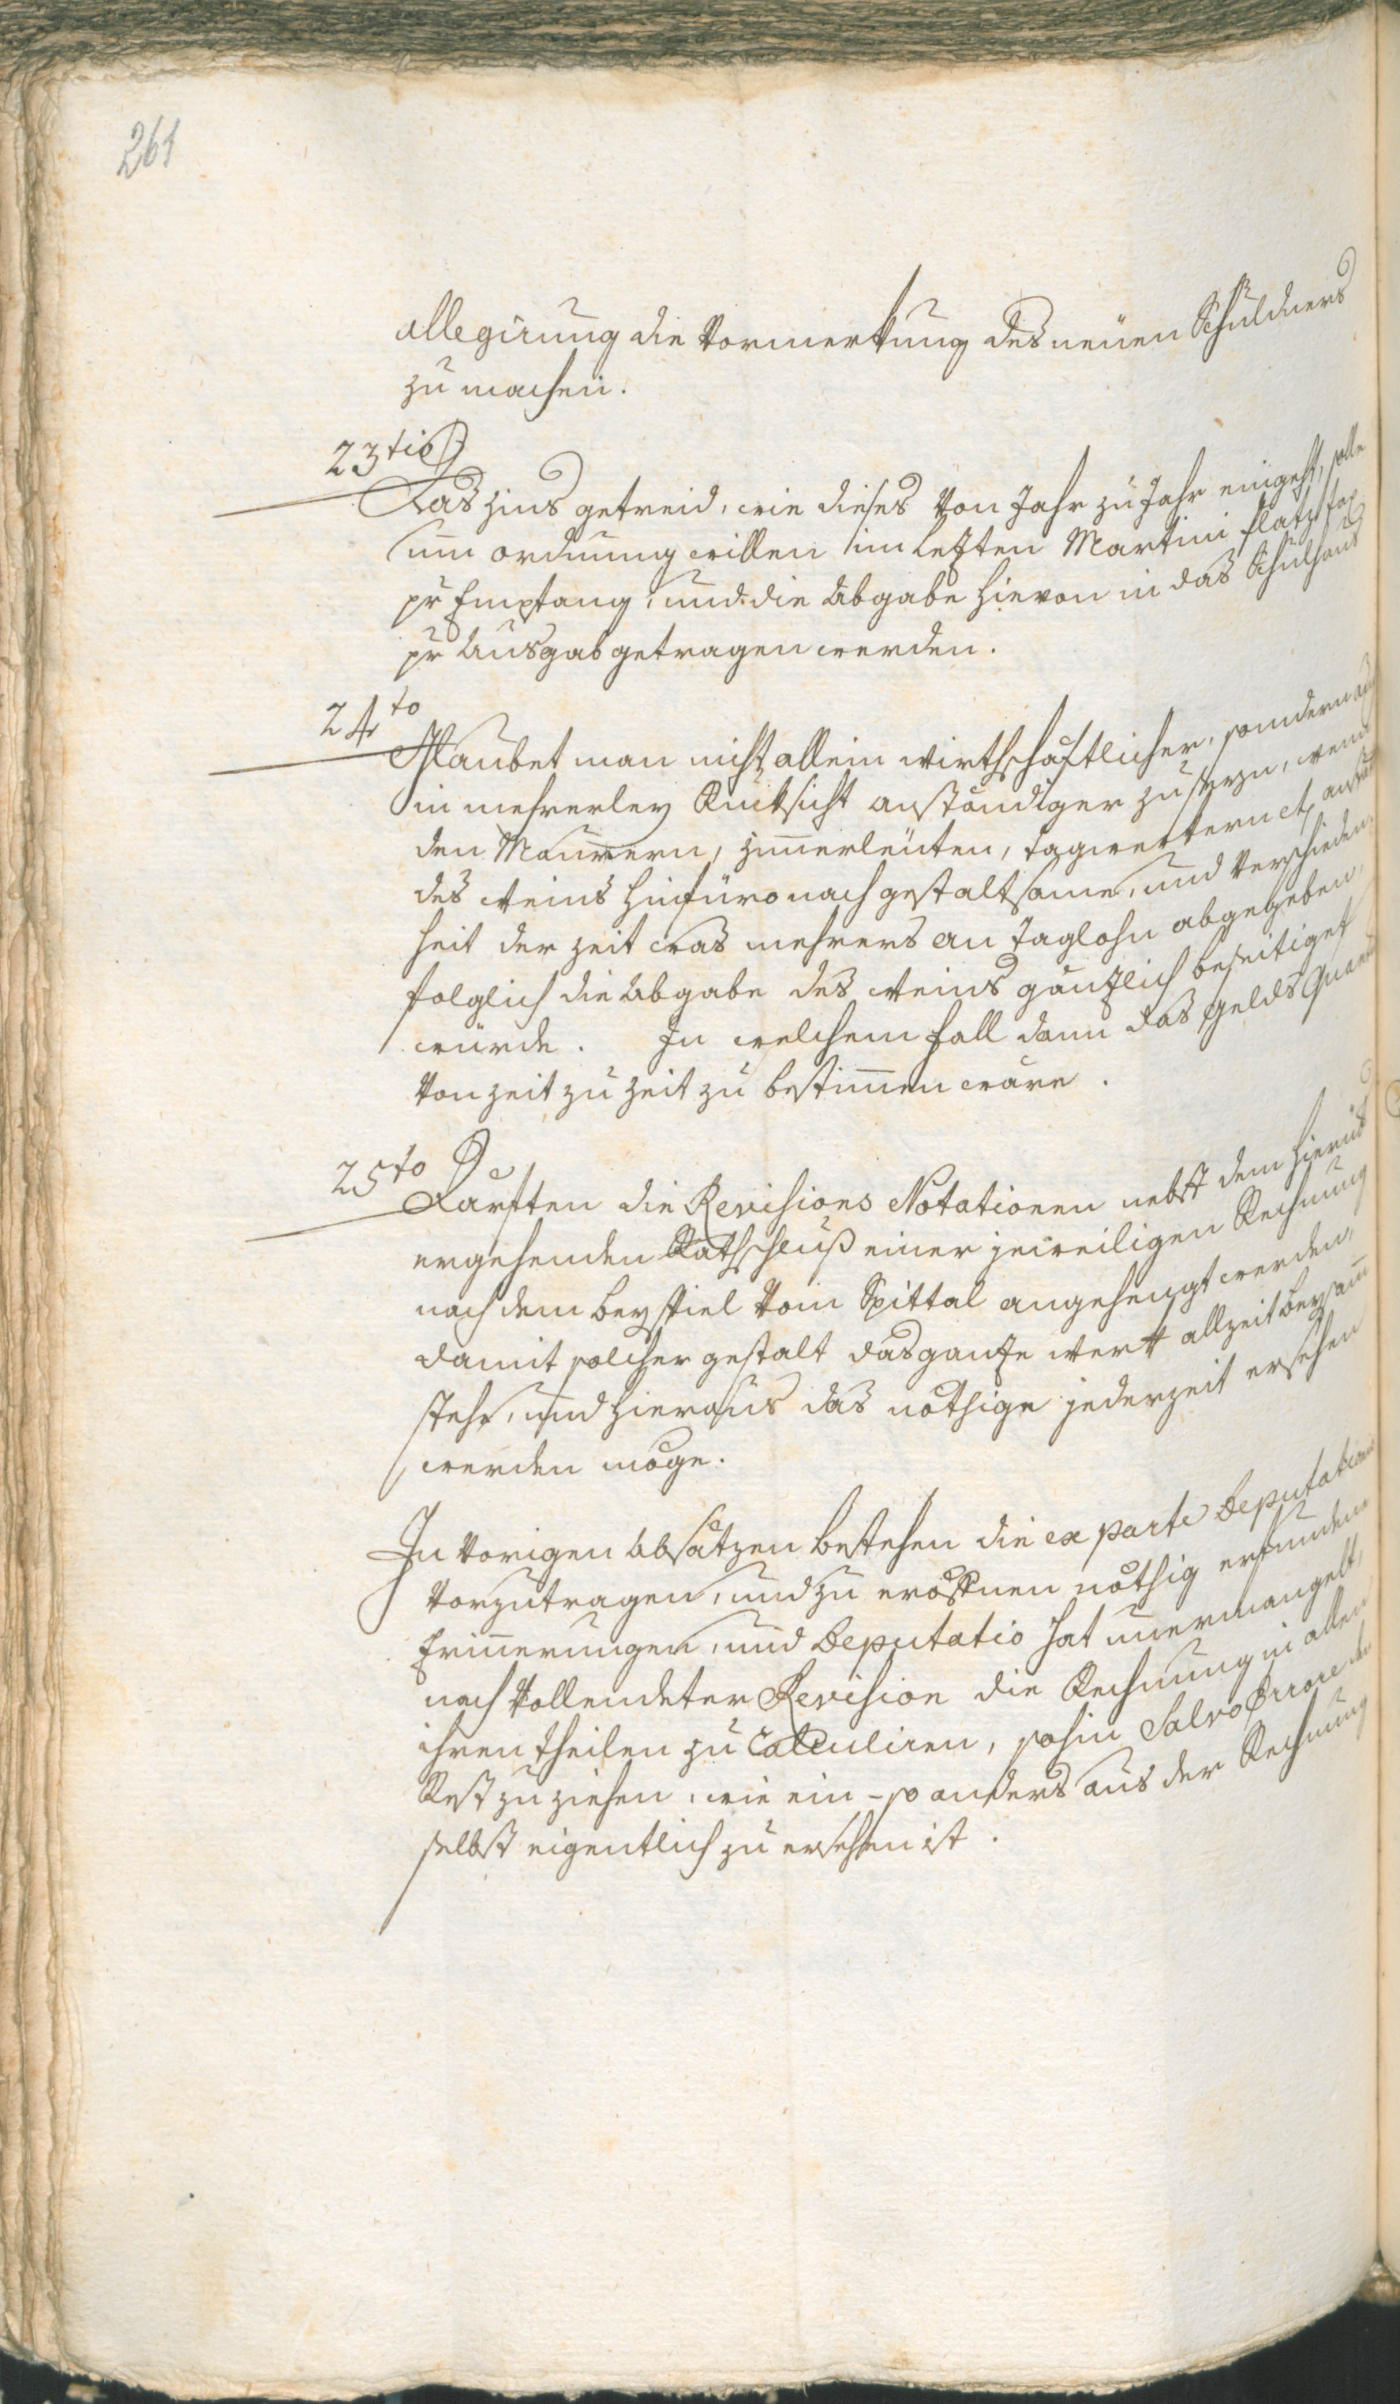 261
allegirung die Vormerkung des neüen Schuldners
zu machen.
23tio
Das zins getreid, wie dieses von Jahr zu Jahr eingeht, solle
um ordnung willen im letzten Martini platz tax
pr Empfang, und die Abgabe hievon in das Schulhaus
pr Ausgab getragen werden.
24to
Glaubet man nicht allein wirthschaftlicher, sondern auch
in mehrerley Rücksicht anständiger zu seyn, wenn
den Maurern, zimmerleüten, tagwerkern etc anstatt
des weins hinfüro nach gestaltsame, und verschieden-
heit der zeit was mehrers an Taglohn abgegeben,
folglich die Abgabe des weins gänzlich beseitiget
würde. In welchem fall dann das gelds Quantum
von zeit zu zeit zu bestimmen wäre.
25to
Därften die Revisions Notationen nebst dem hierüber
ergehenden Rathschluß einer jeweiligen Rechnung
nach dem beyspiel vom Spittal angehengt werden,
damit solcher gestalt das ganze werk allzeit beysamm
stehe, und hieraus das nöthige jederzeit ersehen
werden möge.
In vorigen absätzen bestehen die ex parte Deputationis
vorzutragen, und zu eröffnen nöthig erfunden
Erinnerungen, und Deputatio hat unermangelt,
nach vollendeter Revision die Rechnung in allen
ihren theilen zu Calculiren, sohin Salvo Errore den
Rest zu ziehen, wie ein - so anders aus der Rechnung
selbst eigentlich zu ersehen ist.